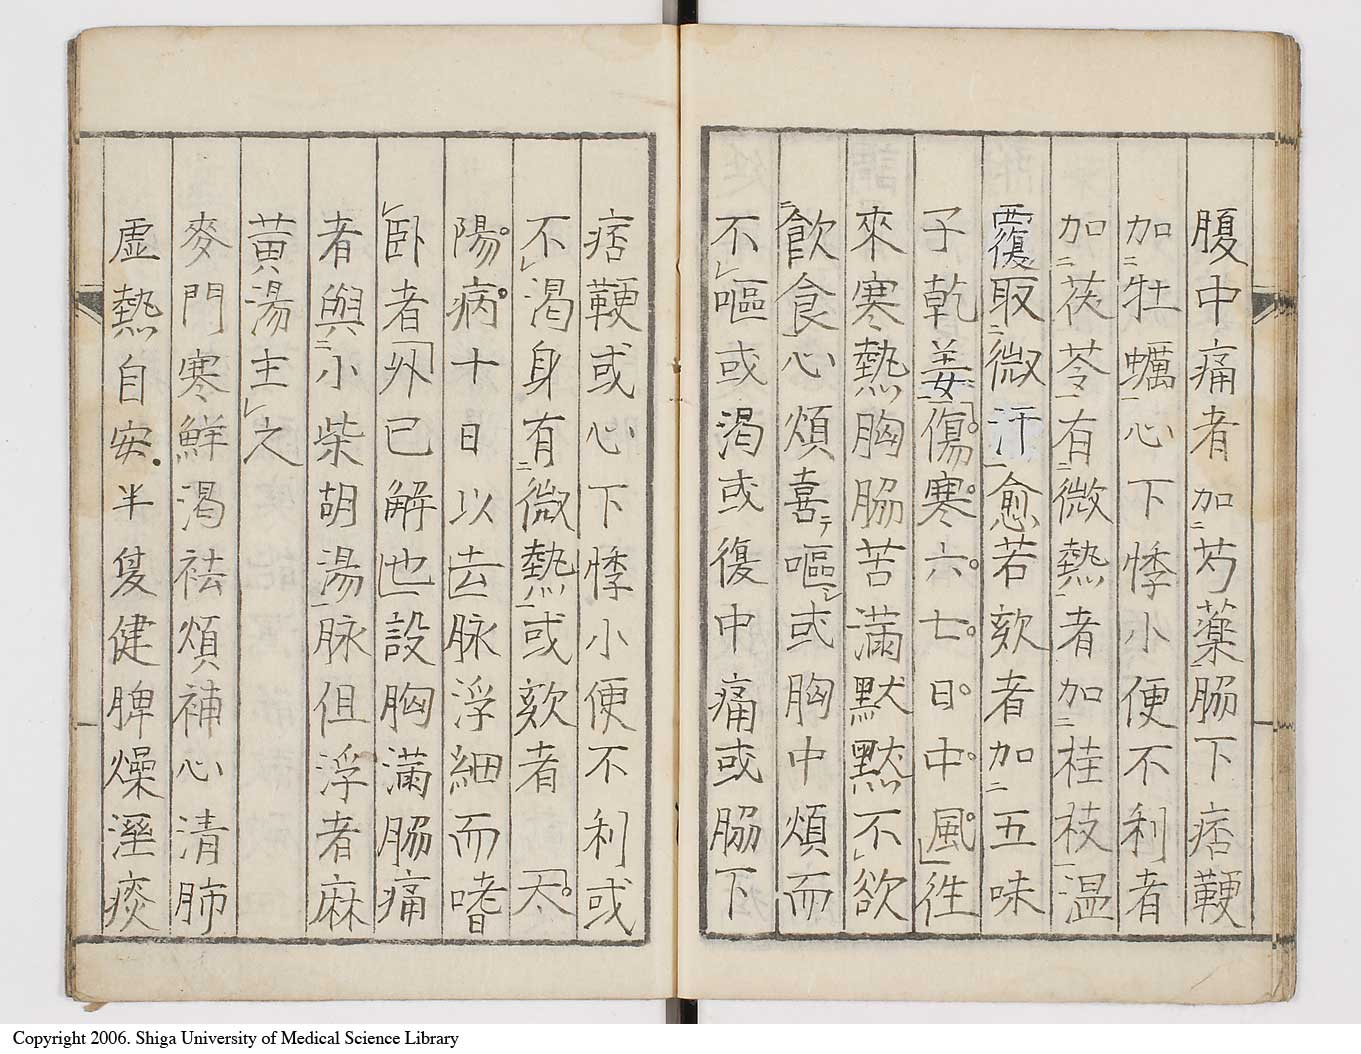 腹中痛者加ニ芍薬脇下痞鞕
加ニ牡蠣一心下悸小便不利者
加ニ茯苓一有ニ微熱一者加ニ桂枝一温
覆取ニ微汗一愈若欬者加ニ五味
子乾姜一「傷寒六七日中風」往
來寒熱胸脇苦滿默默不レ欲
ニ飲食一心煩喜テ嘔シ或胸中煩而
不レ嘔或渇或復中痛或脇下
痞鞕或心下悸小便不利或
不レ渇身有ニ微熱一或欬者「太
陽病十日以去脉浮細而嗜
レ卧者「外已解也」設胸滿脇痛
者與ニ小柴胡湯一脉但浮者麻
黄湯主レ之
麥門寒鮮渇祛煩補心清肺
虚熱自安.半夏健脾燥溼痰
Copyright 2006. Shiga University of Medical Science Library